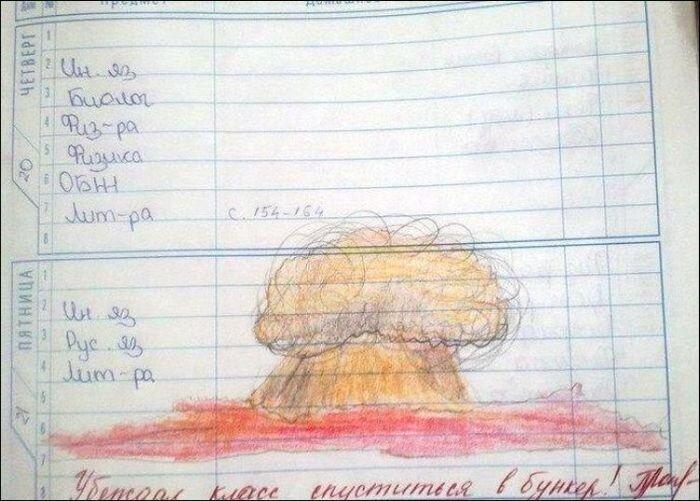 Предмет
ЧЕТВЕРГ
20
1
2 Ин. яз
3 Биолог
4 Физ-ра
5 Физика
6 ОБЖ
7 Лит-ра с. 154-164
8
ПЯТНИЦА
21
1
2 Ин. яз
3 Рус. яз
4 Лит-ра
5
6
7
8
Убеждал класс спуститься в бункер!